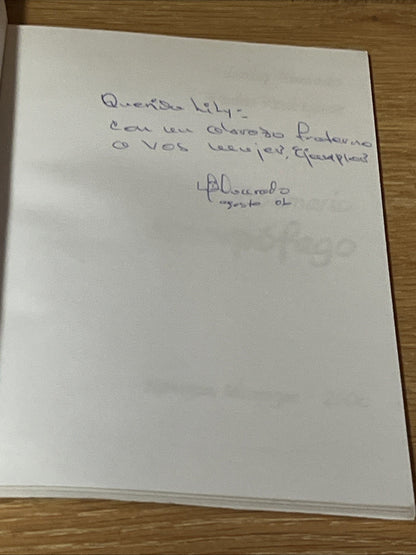 Querida Lily:
con un abrazo fraterno
a vos mujer, ejemplar
agosto 01